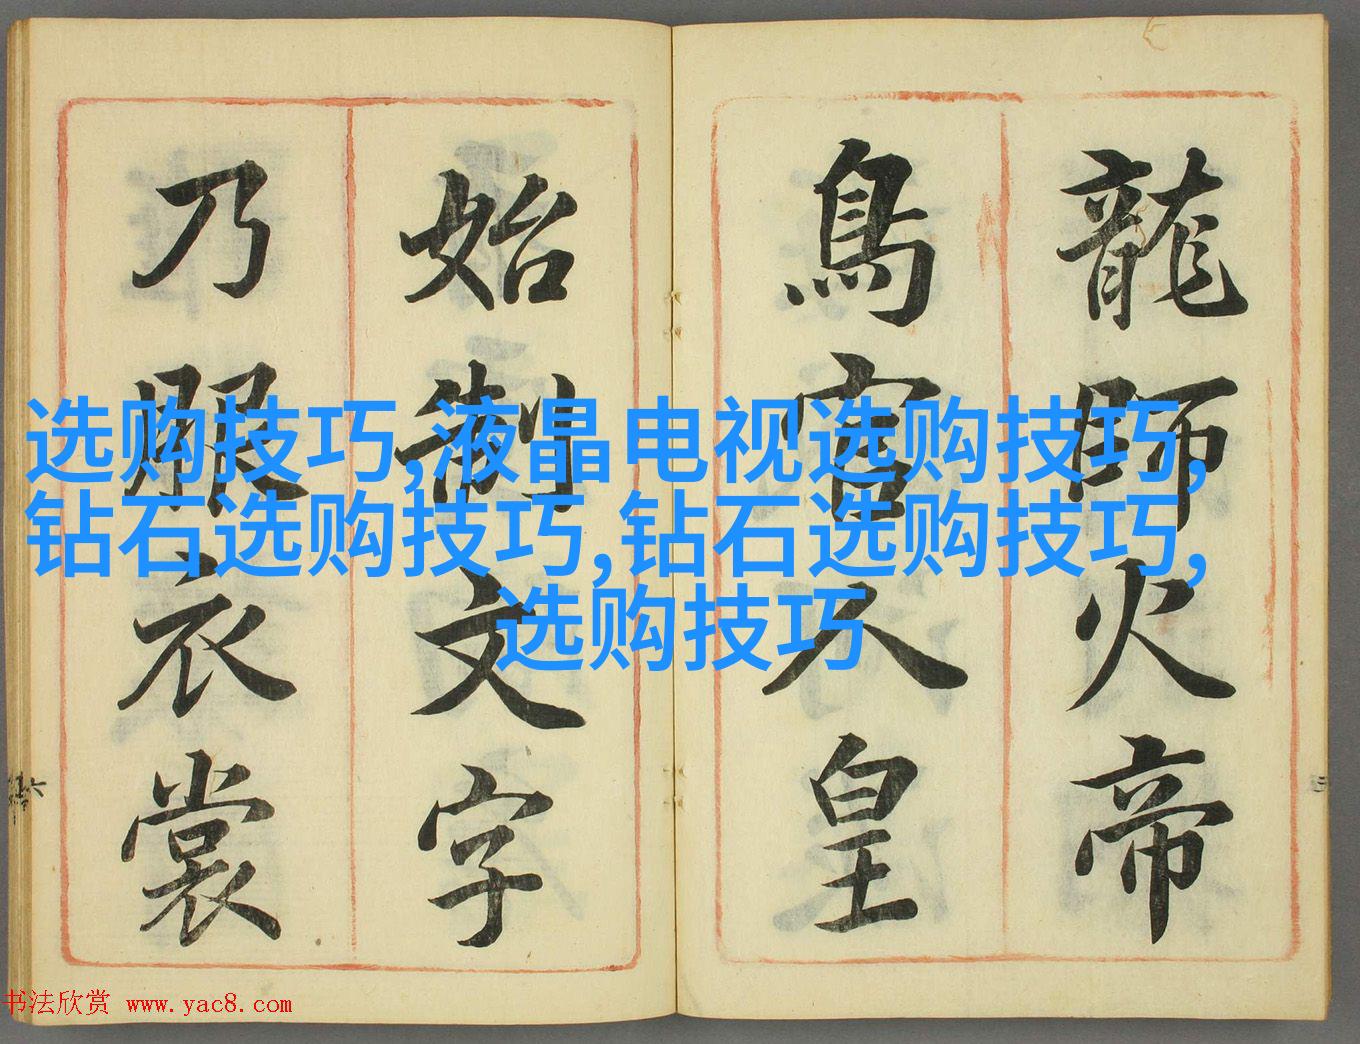 龍師火帝
鳥官人皇
始制文字
乃服衣裳
选购技巧,液晶电视选购技巧,
钻石选购技巧,钻石选购技巧,
选购技巧
书法欣赏 www.yac8.com